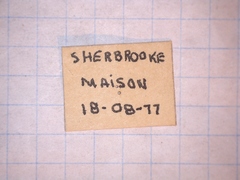 SHERBROOKE
MAISON
18-08-77